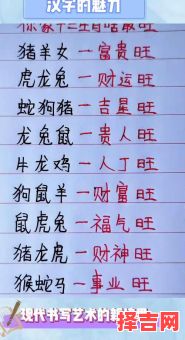 汉字的魅力
你家十二生肖啥最旺
猪羊女一富贵旺
虎龙兔一财运旺
蛇狗猪一吉星旺
龙兔鼠一贵人旺
牛龙鸡一人丁旺
狗鼠羊一财富旺
鼠虎兔一福气旺
猪龙虎一财神旺
猴蛇马一事业旺
现代书写艺术的
择吉网